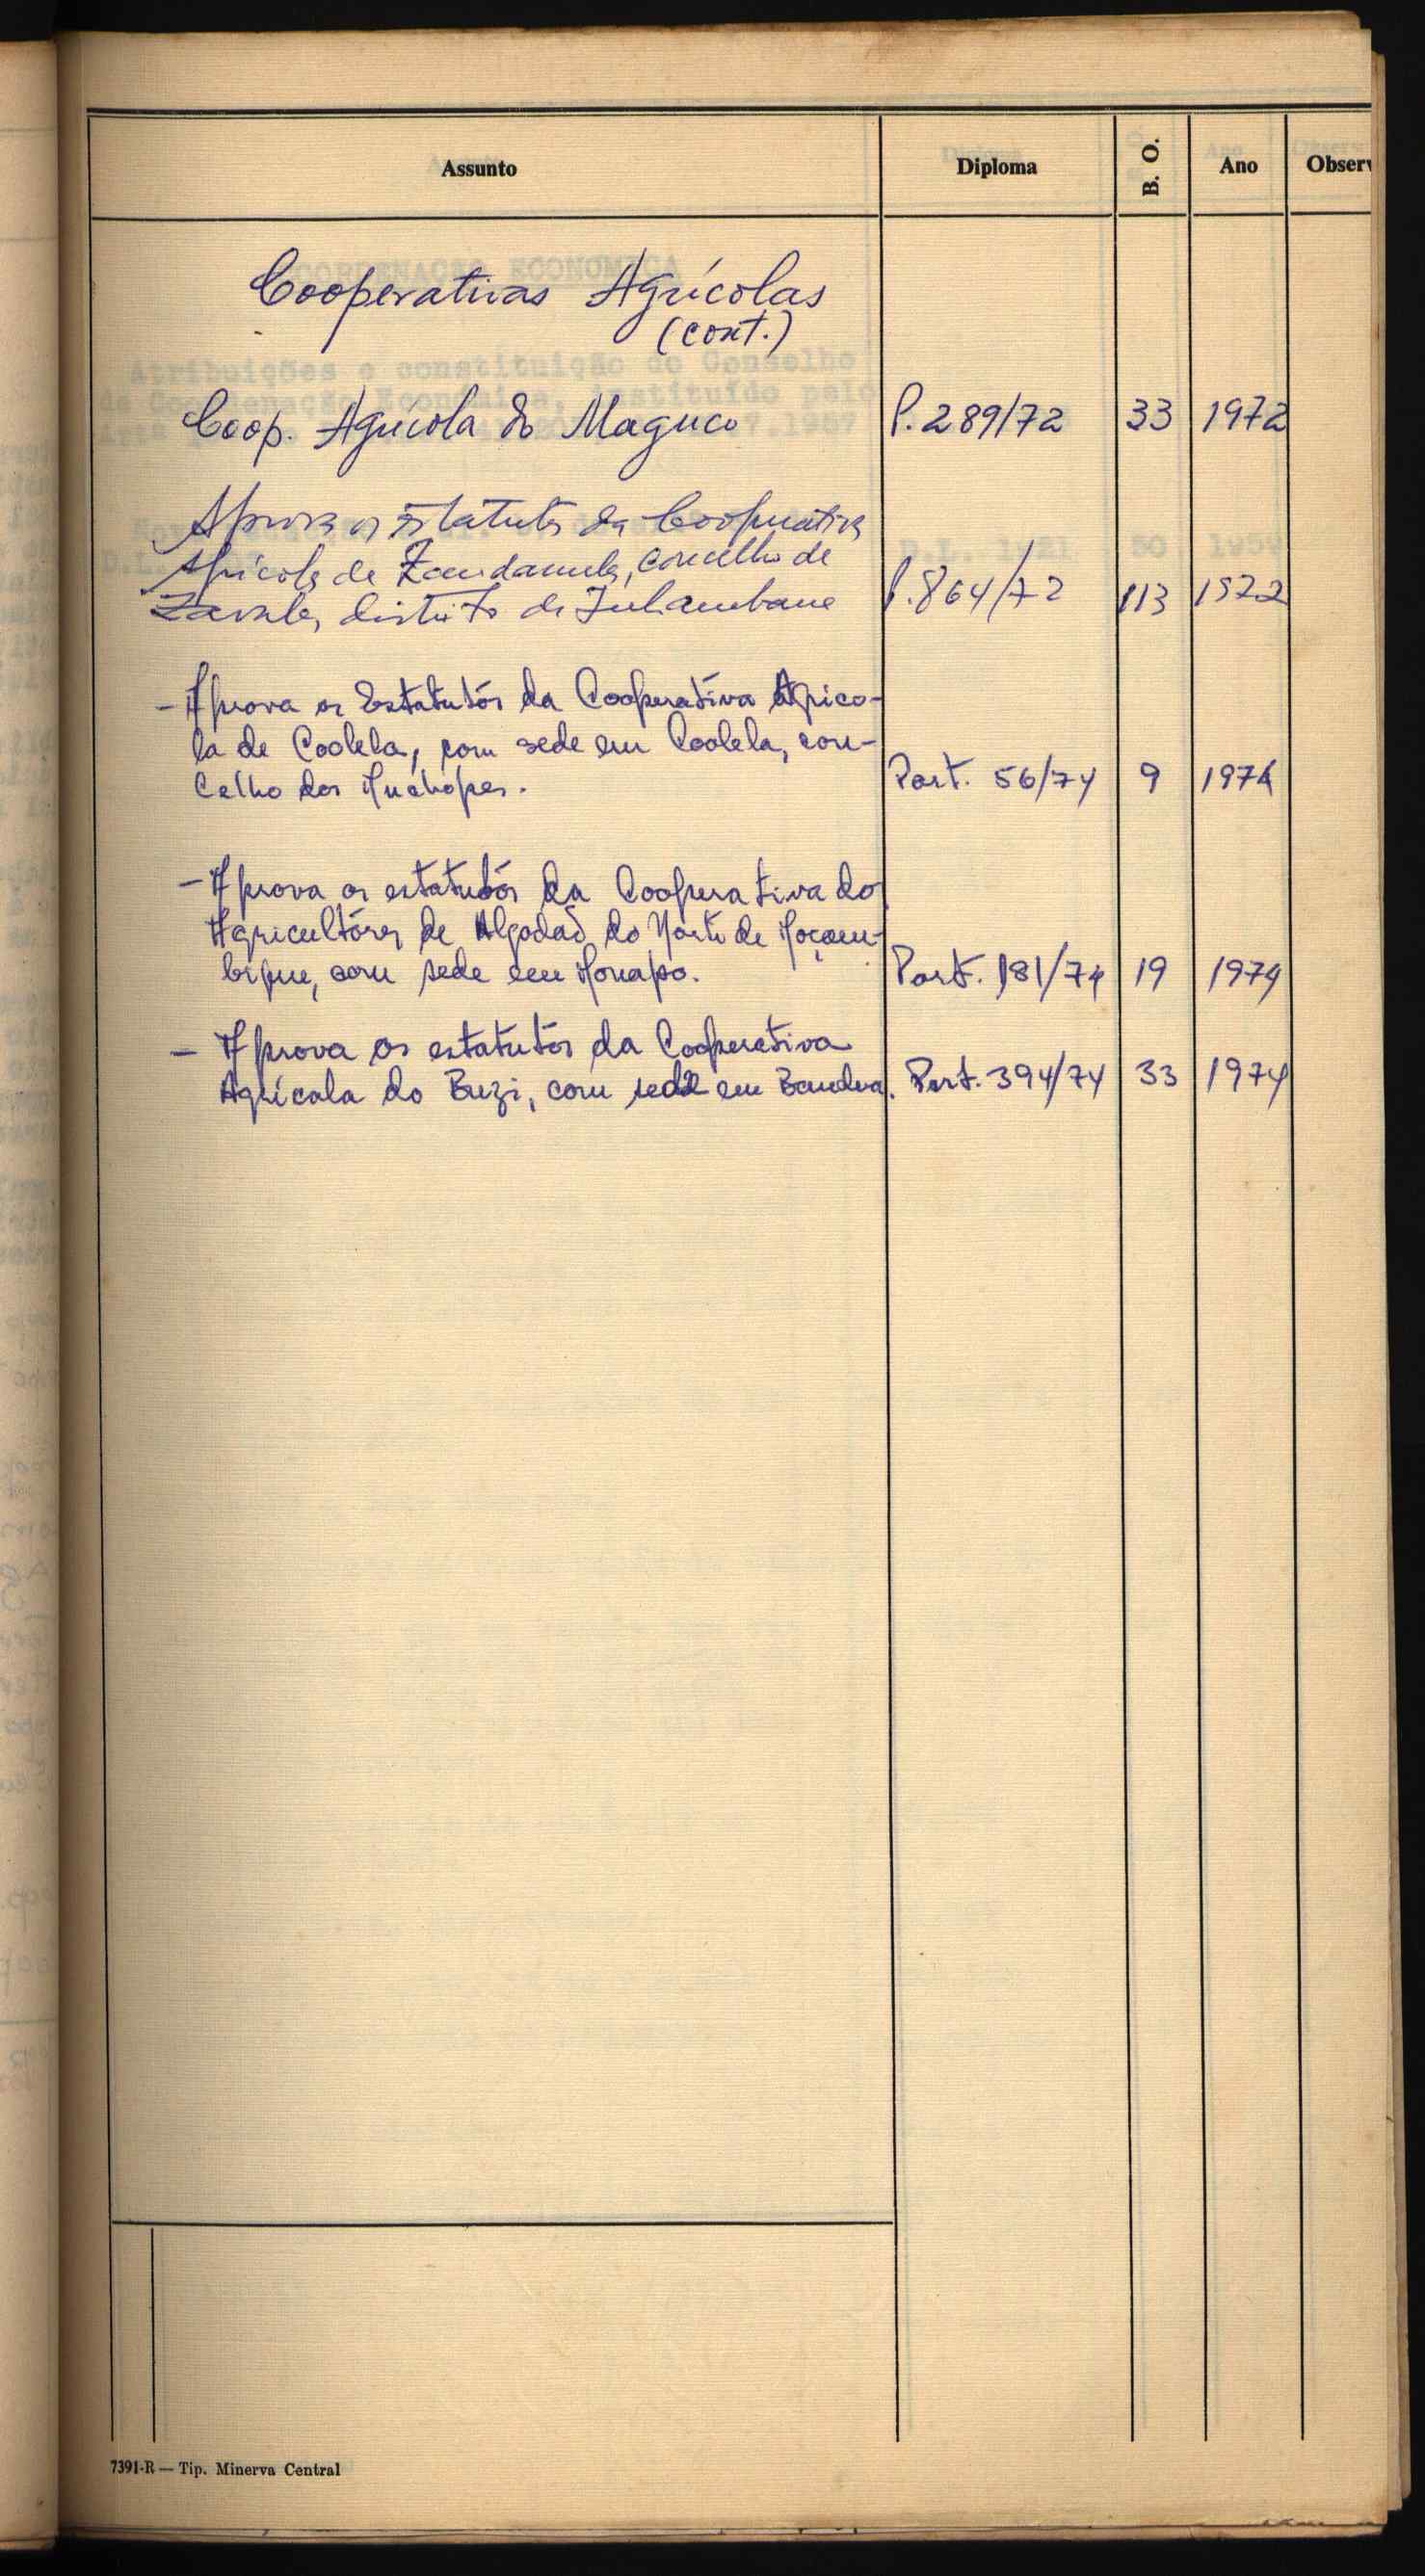 Assunto Diploma B. O. Ano Observ
Cooperativas Agrícolas
(cont.)
Coop. Agrícola do Maguco P. 289/72 33 1972
Aprova os Estatutos da Cooperativa
Agrícola de Zandamela, concelho de
Zavala, distrito de Inhambane P. 864/72 113 1972
- Aprova os Estatutos da Cooperativa Agrico-
la de Coolela, com sede em Coolela, con-
celho dos Muchopes. Port. 56/74 9 1974
- Aprova os estatutos da Cooperativa do
Agricultores de Algodão do Norte de Moçam-
bique, com sede em Monapo. Port. 181/74 19 1974
- Aprova os estatutos da Cooperativa
Agrícola do Buzi, com sede em Bandua. Port. 394/74 33 1974
7391-R — Tip. Minerva Central